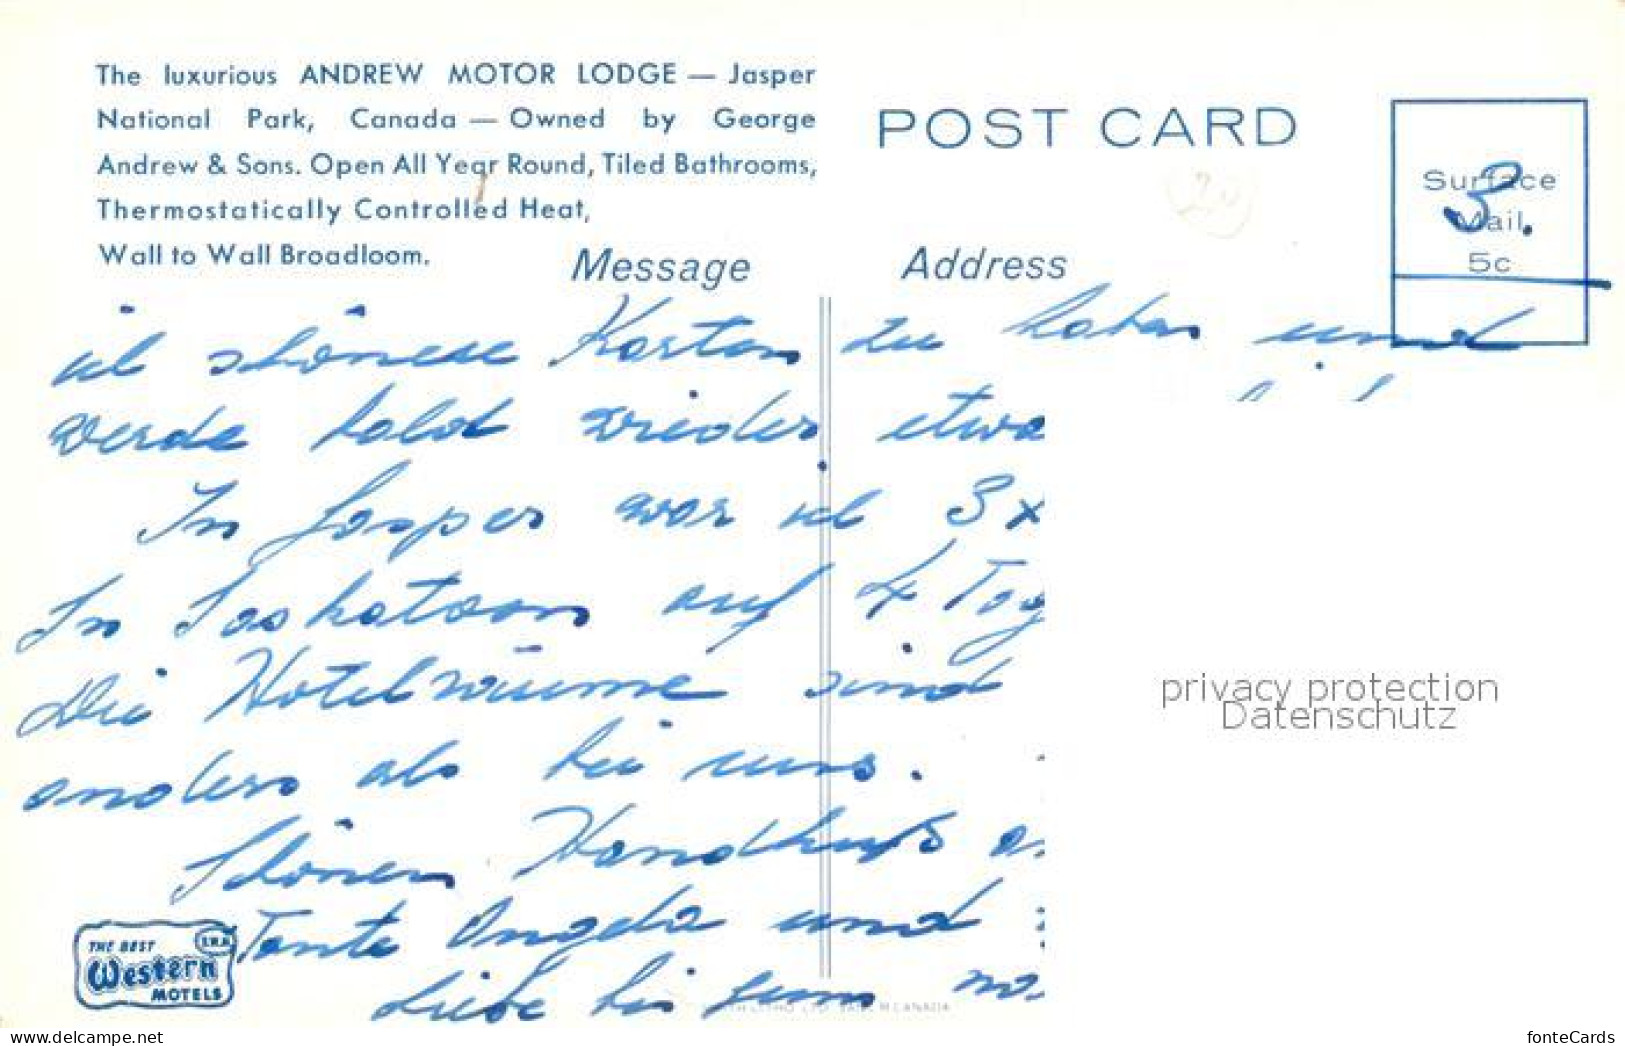 The luxurious ANDREW MOTOR LODGE — Jasper
National Park, Canada — Owned by George
Andrew & Sons. Open All Year Round, Tiled Bathrooms,
Thermostatically Controlled Heat,
Wall to Wall Broadloom.
POST CARD
Surface
Mail
5c
3.
Message
Address
ich schönere Karten zu haben und
werde bald wieder etwa
In Jasper war ich 3x
In Saskatoon auf 4 Tag
Die Hotelräume sind
anders als bei uns.
Schönen Handkuß
Tante und
Liebe bis zum
privacy protection
Datenschutz
THE BEST
Western
MOTELS
www.delcampe.net
fonteCards